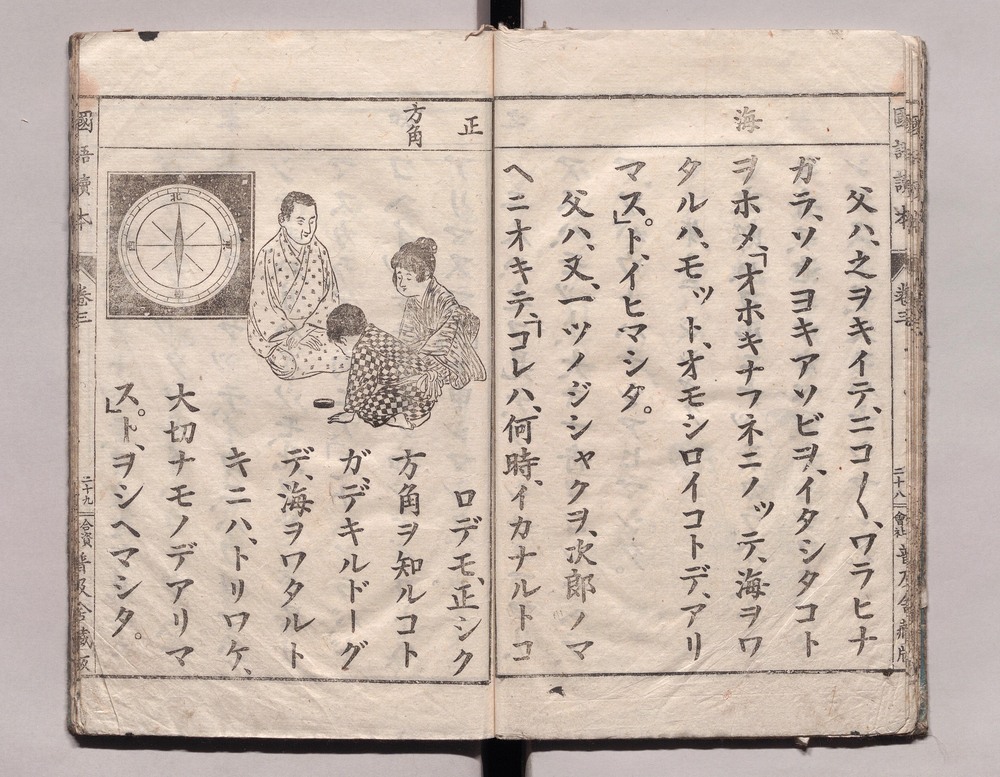 國語讀本
卷三
二十八
會社
普及舍藏版
海
父ハ、之ヲキイテ、ニコ〱、ワラヒナ
ガラ、ソノヨキアソビヲ、イタシタコト
ヲホメ、「オホキナフネニノッテ、海ヲワ
タルハ、モット、オモシロイコトデ、アリ
マス。」ト、イヒマシタ。
父ハ、又、一ツノジシャクヲ、次郎ノマ
ヘニオキテ、「コレハ、何時、イカナルトコ
正
方角
ロデモ、正シク
方角ヲ知ルコト
ガデキルドーグ
デ、海ヲワタルト
キニハ、トリワケ、
大切ナモノデアリマ
ス。」ト、ヲシヘマシタ。
北
東
西
國語讀本
卷三
二十九
合資
普及舍藏版